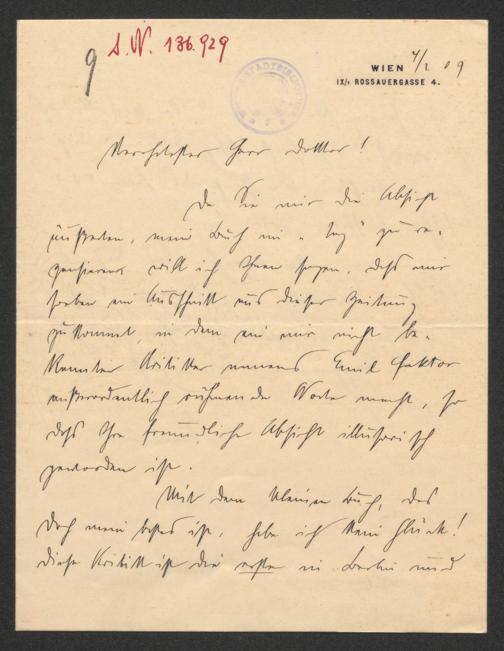 9
S. N. 136.929
WIEN 4/2 09
IX/1 ROSSAUERGASSE 4.
Verehrtester Herr Doktor!
Da Sie mir die Absicht
äußerten, mein Buch im „Tag“ zu re-
zensieren will ich Ihnen sagen, daß mir
soeben ein Ausschnitt aus dieser Zeitung
zukommt, in dem ein mir nicht be-
kannter Kritiker namens Emil Faktor
außerordentlich rühmende Worte macht, so
daß Ihre freundliche Absicht illusorisch
geworden ist.
Mit dem kleinen Buch, das
doch mein bestes ist, habe ich kein Glück!
diese Kritik ist die erste in Berlin und